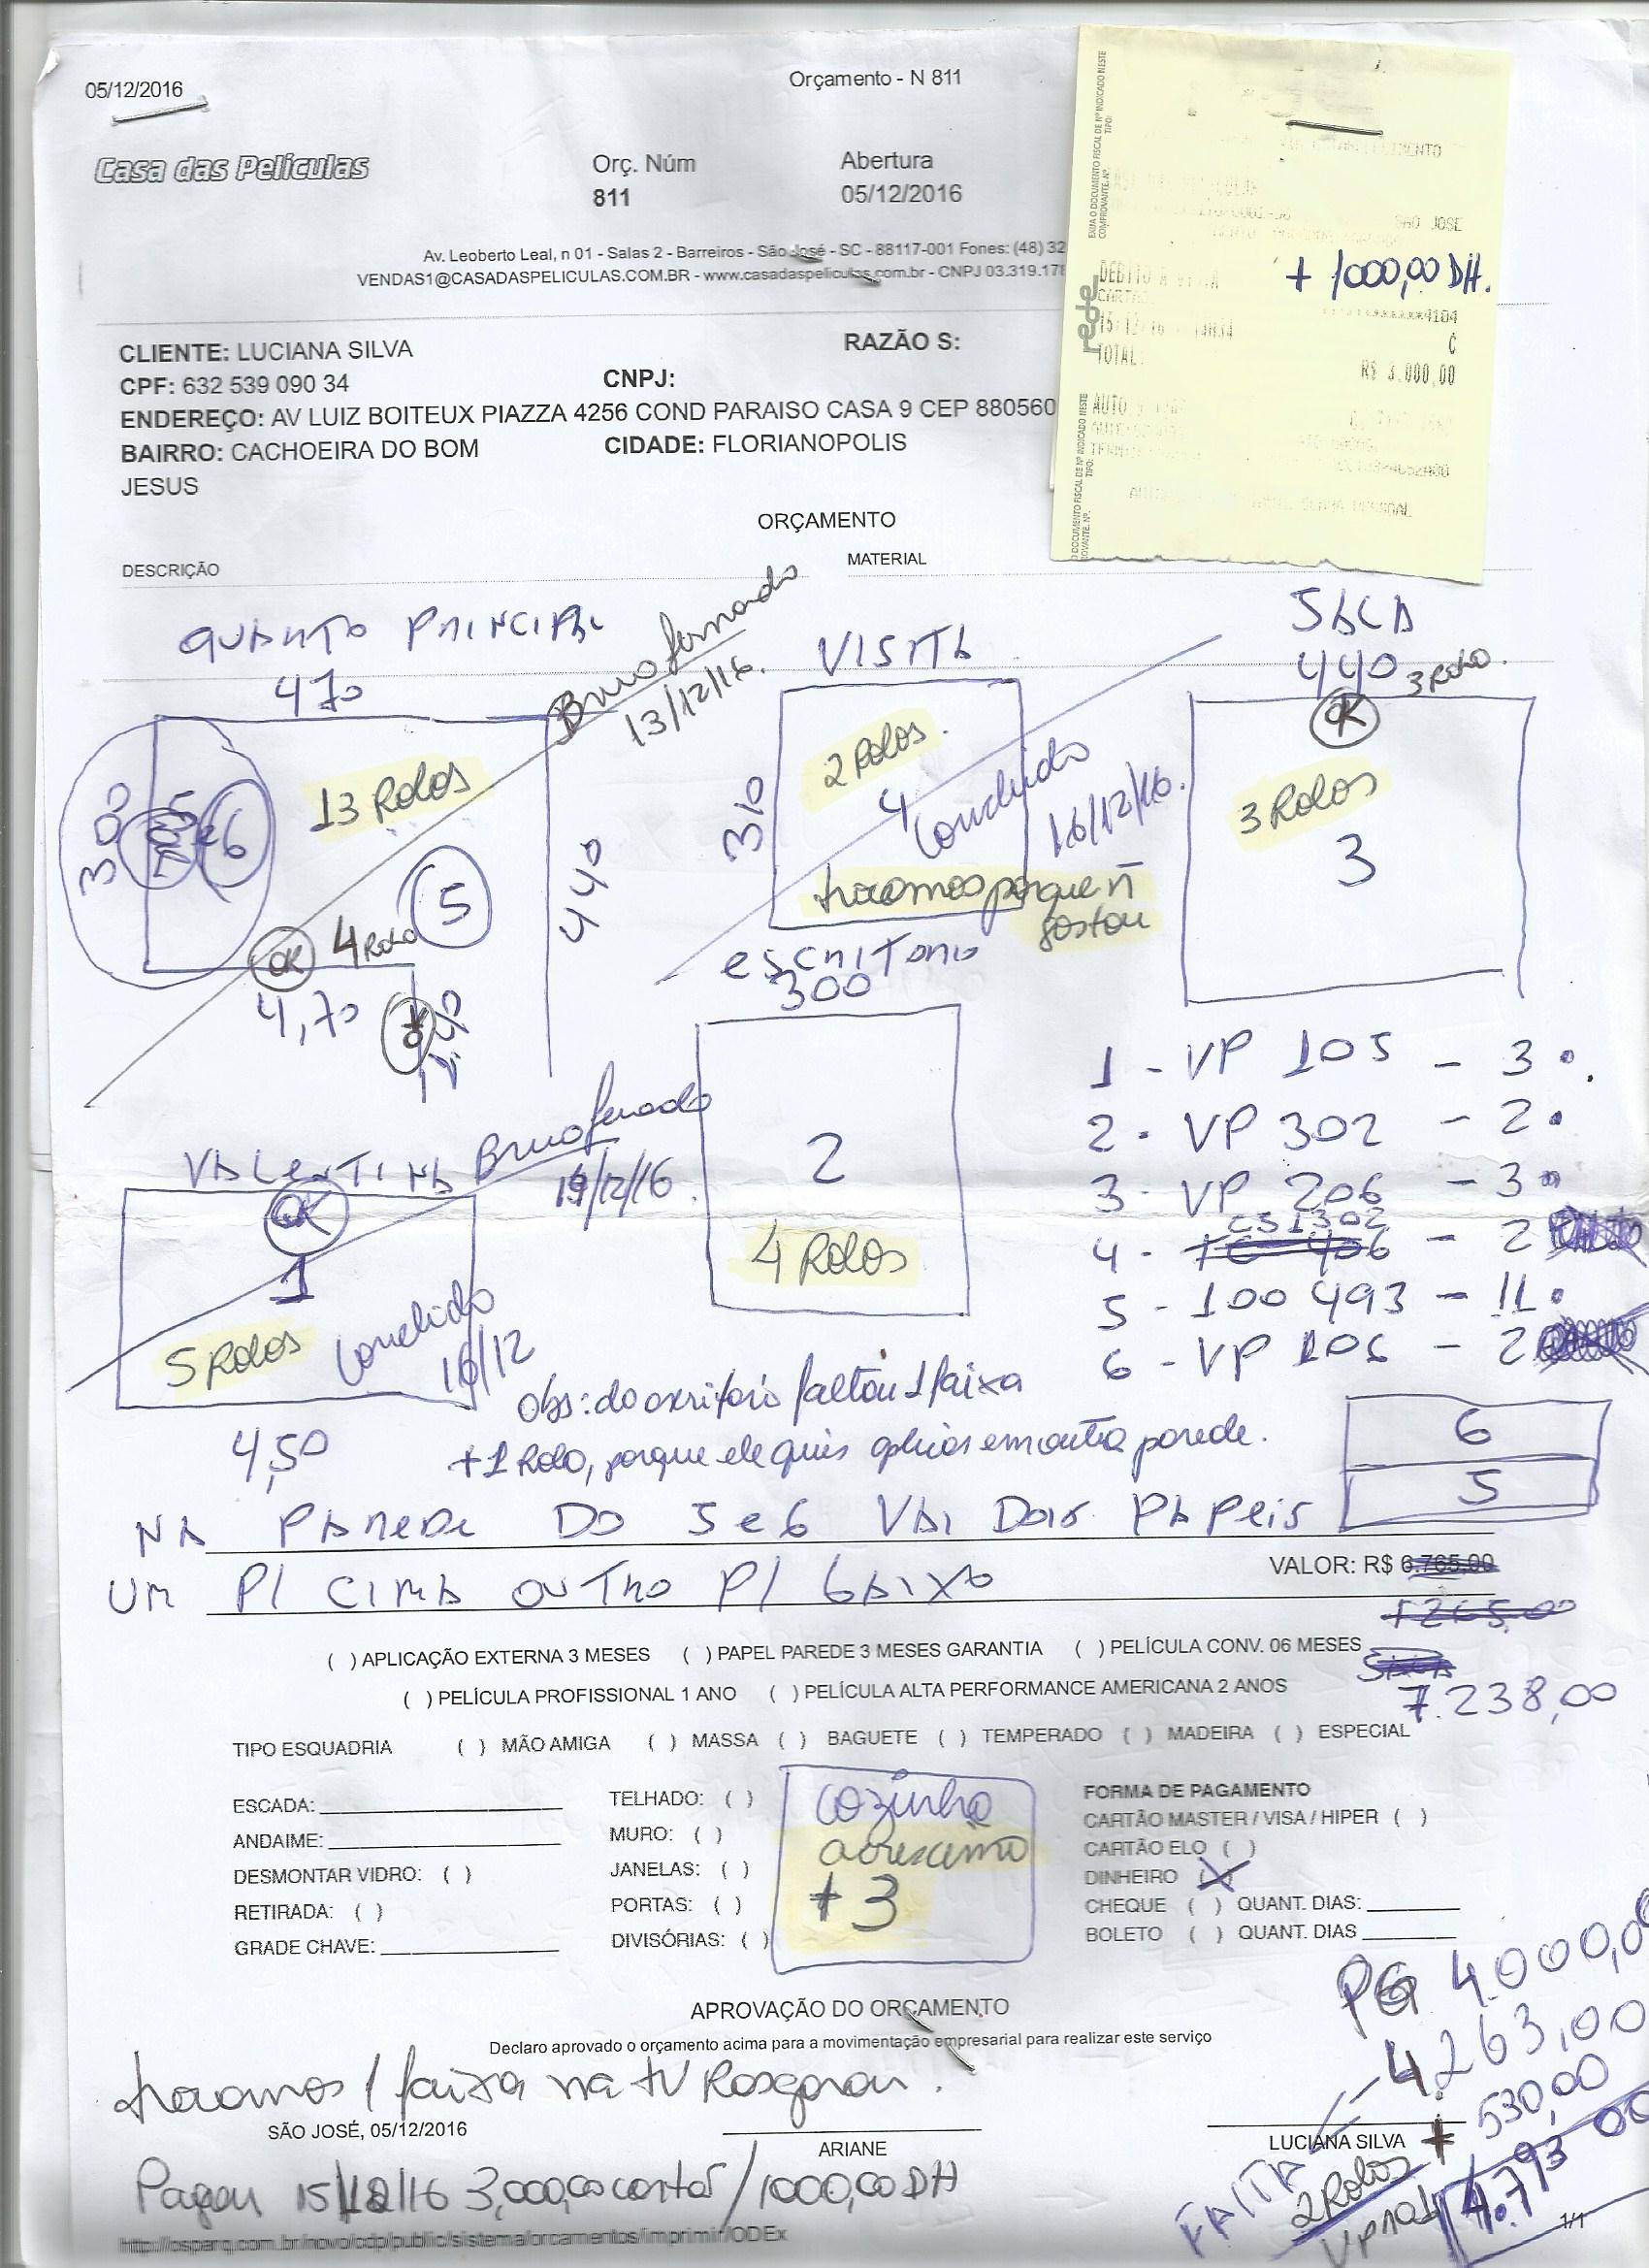 05/12/2016
Orçamento - N 811
Casa das Películas
Orç. Núm
811
Abertura
05/12/2016
Av. Leoberto Leal, n 01 - Salas 2 - Barreiros - São José - SC - 88117-001 Fones: (48) 32
VENDAS1@CASADASPELICULAS.COM.BR - www.casadaspeliculas.com.br - CNPJ 03.319.178
EXIJA O DOCUMENTO FISCAL DE Nº INDICADO NESTE
COMPROVANTE. Nº. TIPO:
SÃO JOSE
+ 1000,00 DH.
rede
DEBITO A VISTA
************4104
C
TOTAL:
R$ 3.000,00
CLIENTE: LUCIANA SILVA
RAZÃO S:
CPF: 632 539 090 34
CNPJ:
ENDEREÇO: AV LUIZ BOITEUX PIAZZA 4256 COND PARAISO CASA 9 CEP 880560
BAIRRO: CACHOEIRA DO BOM JESUS
CIDADE: FLORIANOPOLIS
ORÇAMENTO
DESCRIÇÃO
MATERIAL
QUARTO PRINCIPAL
470
Bruno fernando
13/12/16.
VISITA
SACA
440
3 ROLO.
OK
13 ROLOS
300
6
5
440
OK 4 ROLO
4,70
OK
310
2 ROLOS.
4
Concluído
16/12/16.
tiramos porque ñ
gostou
3 ROLOS
3
escritorio
300
2
4 ROLOS
VALENTINA
Bruno fernando
OK
1
5 ROLOS
Concluído
4,50
1 - VP 105 - 3
2 - VP 302 - 2
3 - VP 206 - 3
4 - CS1302 - 2
5 - 100 493 - 11
6 - VP 106 - 2
obs: do escritorio faltou 1 faixa
+1 Rolo, porque ele quis aplicar em outra parede.
6
5
NA PAREDE DO 5 e 6 VAI DOIS PAPEIS
UM P/ CIMA OUTRO P/ BAIXO
VALOR: R$ 6.765,00
7265,00
7.238,00
( ) APLICAÇÃO EXTERNA 3 MESES ( ) PAPEL PAREDE 3 MESES GARANTIA ( ) PELÍCULA CONV. 06 MESES
( ) PELÍCULA PROFISSIONAL 1 ANO ( ) PELÍCULA ALTA PERFORMANCE AMERICANA 2 ANOS
TIPO ESQUADRIA ( ) MÃO AMIGA ( ) MASSA ( ) BAGUETE ( ) TEMPERADO ( ) MADEIRA ( ) ESPECIAL
ESCADA:
ANDAIME:
DESMONTAR VIDRO: ( )
RETIRADA: ( )
GRADE CHAVE:
TELHADO: ( )
MURO: ( )
JANELAS: ( )
PORTAS: ( )
DIVISÓRIAS: ( )
cozinha
acrescimo
+3
FORMA DE PAGAMENTO
CARTÃO MASTER / VISA / HIPER ( )
CARTÃO ELO ( )
DINHEIRO (X)
CHEQUE ( ) QUANT. DIAS:
BOLETO ( ) QUANT. DIAS
PG 4.000,00
4.263,00
530,00
4.793,00
APROVAÇÃO DO ORÇAMENTO
Declaro aprovado o orçamento acima para a movimentação empresarial para realizar este serviço
tiramos 1 faixa na tv
SÃO JOSÉ, 05/12/2016
ARIANE
LUCIANA SILVA
FALTA
2 Rolos
Pagou 15/12/16 3,000,00 cartão / 1000,00 DH
http://osparq.com.br/novo/cdp/public/sistema/orcamentos/imprimir/ODEx
1/1